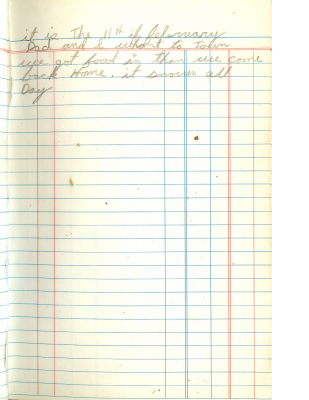 it is The 11th of february
Dad and I whant to Town
wee got food in than wee come
back Home. it snows all
Day